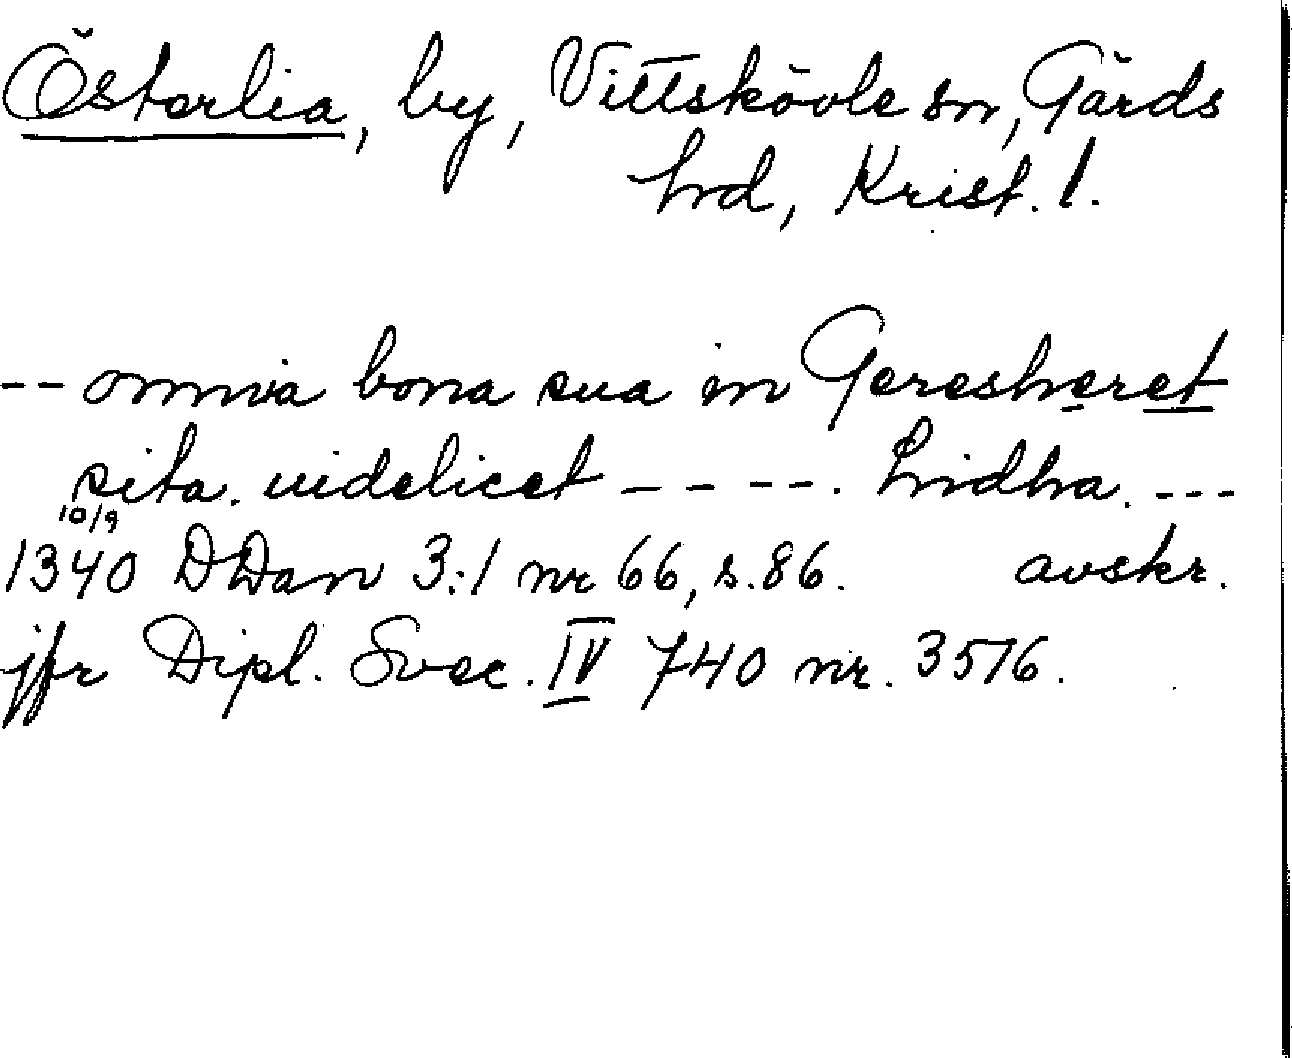 Österlia, by, Vittskövle sn, Gärds
hrd, Krist. l.
-- omnia bona sua in Geresheret
sita. uidelicet ----. Lridha. ---
10/9
1340 DDan 3:1 nr 66, s. 86. avskr.
jfr Dipl. Svec. IV 740 nr. 3576.